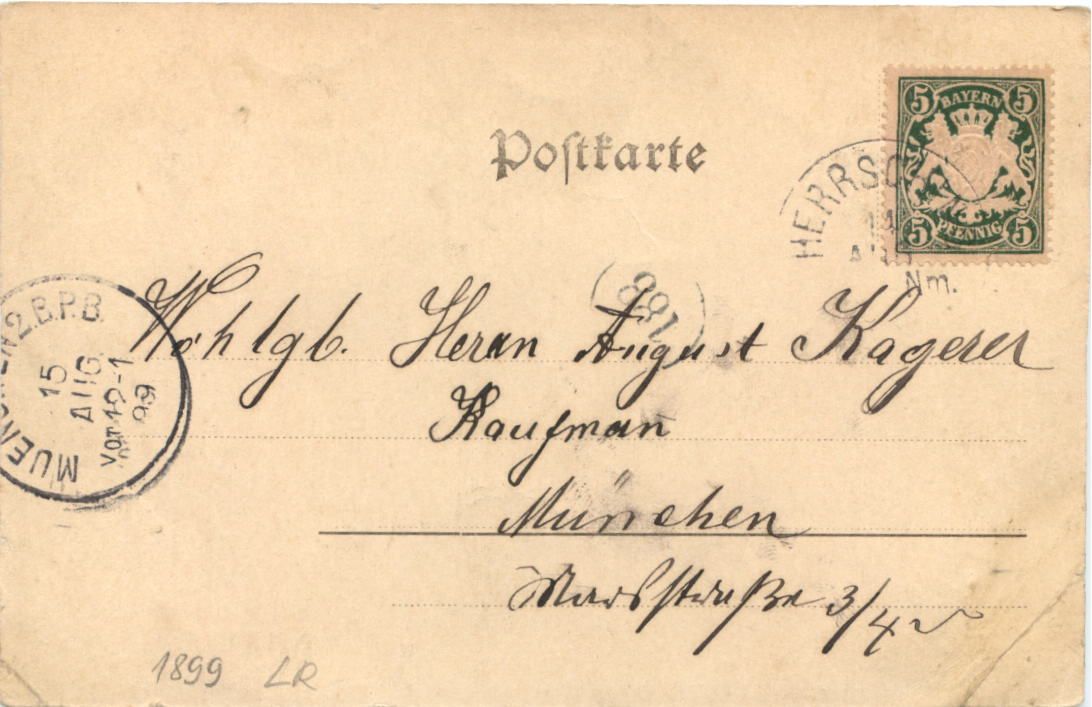 Postkarte
5 BAYERN 5
5 PFENNIG 5
HERRSCH
14
AUG
Nm.
188
MUENCHEN 2.B.P.B.
15
AUG.
Vor 12-1
99
Wohlgb. Herrn August Kagerer
Kaufman
München
Marsstraße 3/4
1899 LR